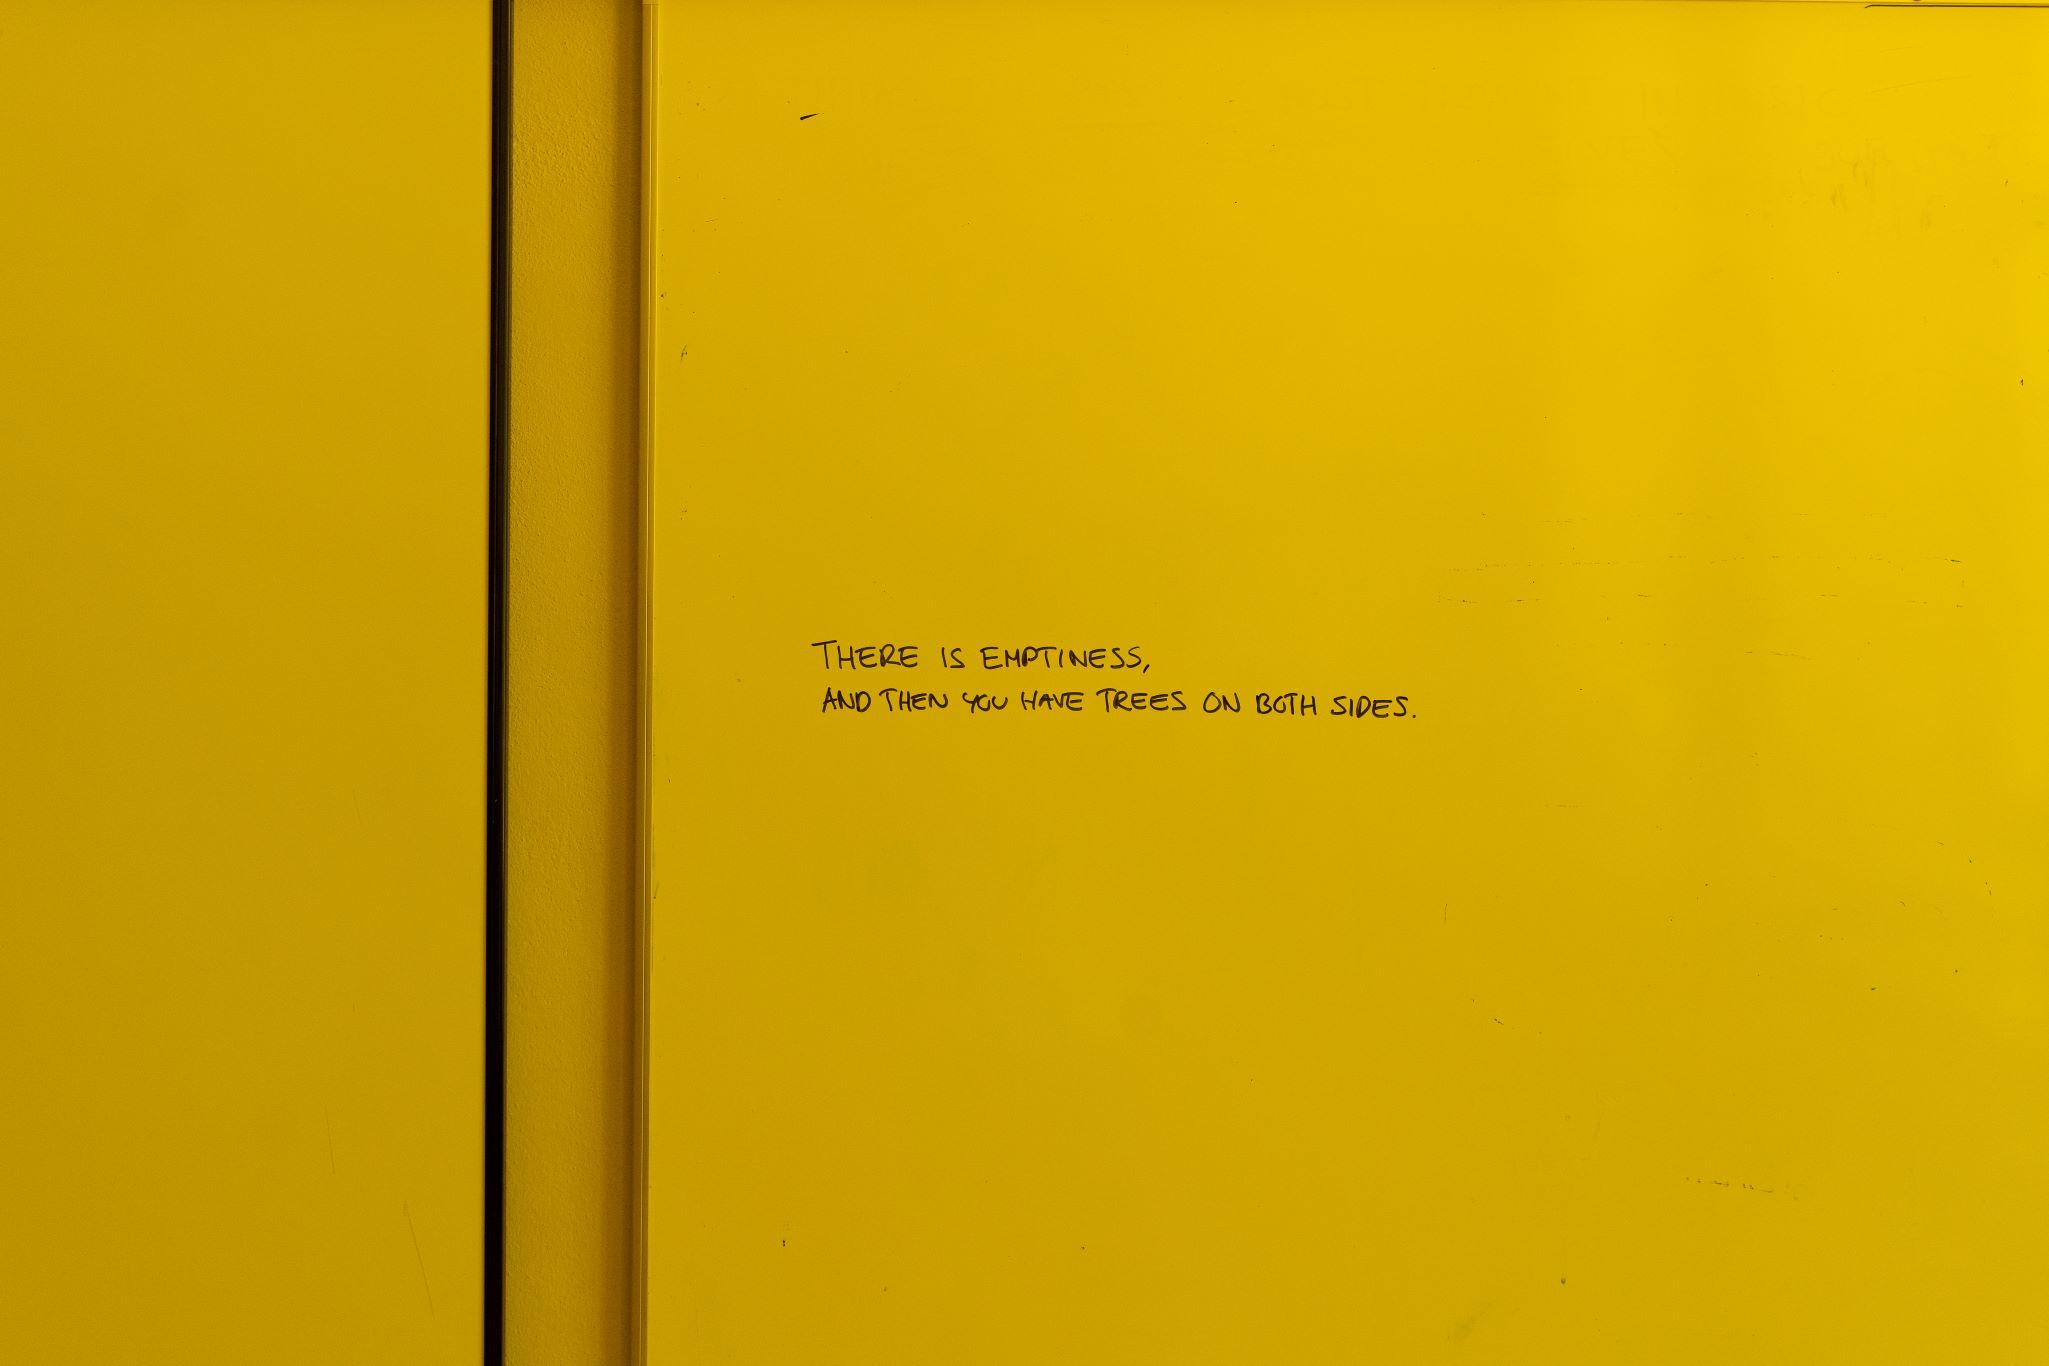 THERE IS EMPTINESS,
AND THEN YOU HAVE TREES ON BOTH SIDES.